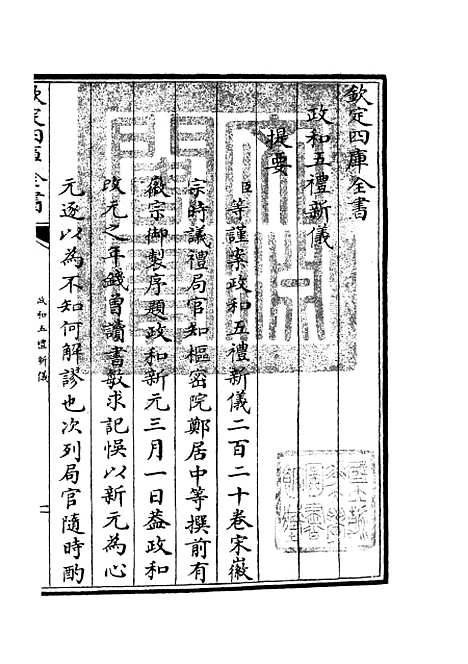 欽定四庫全書
政和五禮新儀
提要
臣等謹案政和五禮新儀二百二十卷宋徽
宗時議禮局官知樞密院鄭居中等撰前有
徽宗御製序題政和新元三月一日葢政和
改元之年錢曾讀書敏求記悞以新元為心
元逐以為不知何解謬也次列局官隨時酌
欽定四庫全書
政和五禮新儀